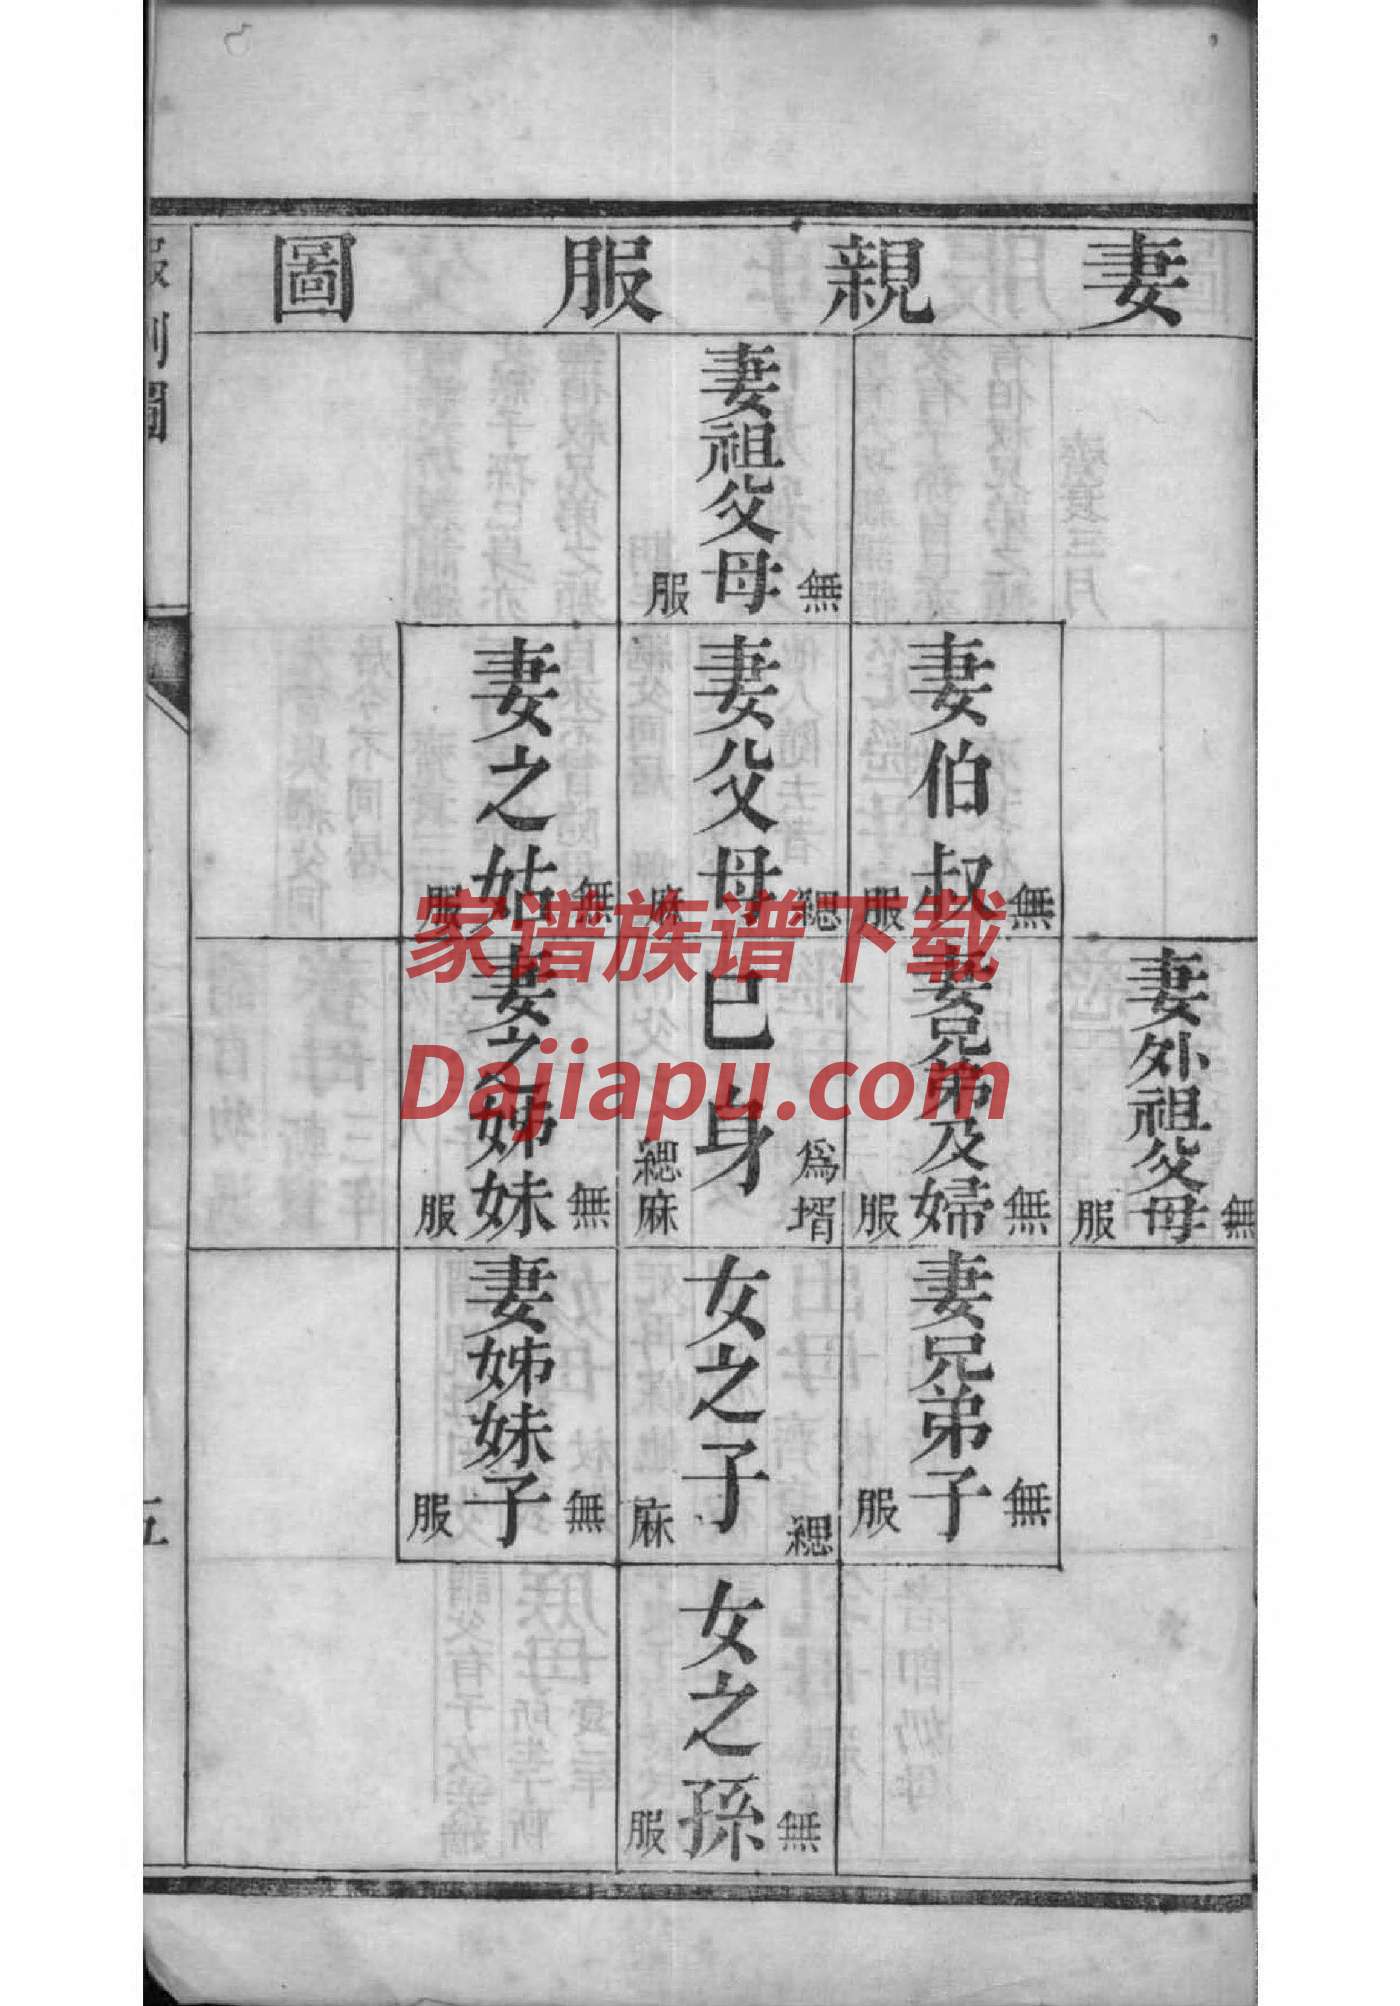 妻親服圖
妻祖父母
無服
妻伯叔
無服
妻父母
緦麻
妻之姑
無服
妻外祖父母
無服
妻兄弟及婦
無服
已身
為壻緦麻
妻之姊妹
無服
妻兄弟子
無服
女之子
緦麻
妻姊妹子
無服
女之孫
無服
服制圖
五
家谱族谱下载
Dajiapu.com